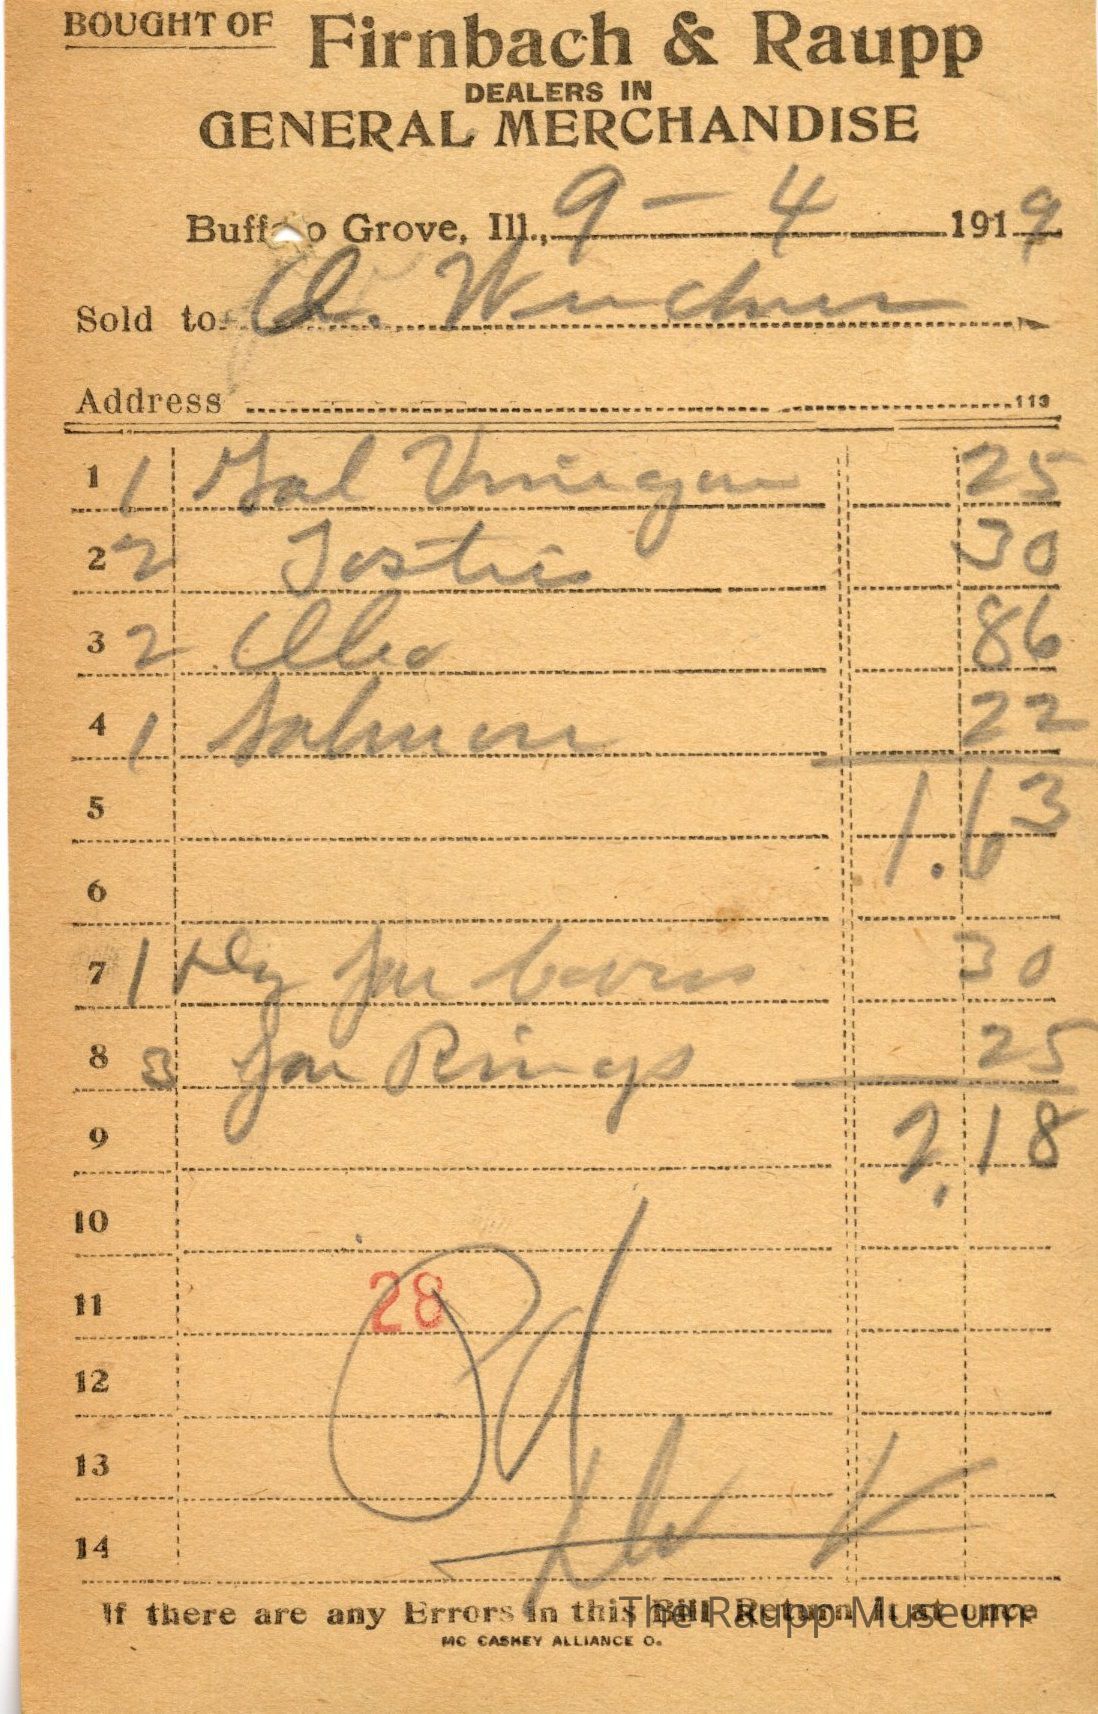 BOUGHT OF Firnbach & Raupp
DEALERS IN
GENERAL MERCHANDISE
Buffalo Grove, Ill., 9 - 4 1919
Sold to A.
Address 113
1 1 Gal Vinegar 25
2 2 Tosties 30
3 2 Oleo 86
4 1 Salmon 22
5 1.63
6
7 1 Dz Jar Covers 30
8 3 Jar Rings 25
9 2.18
10
11 28
12 Pd
13
14
If there are any Errors in this Bill Return it at once
The Raupp Museum
MC CASKEY ALLIANCE O.